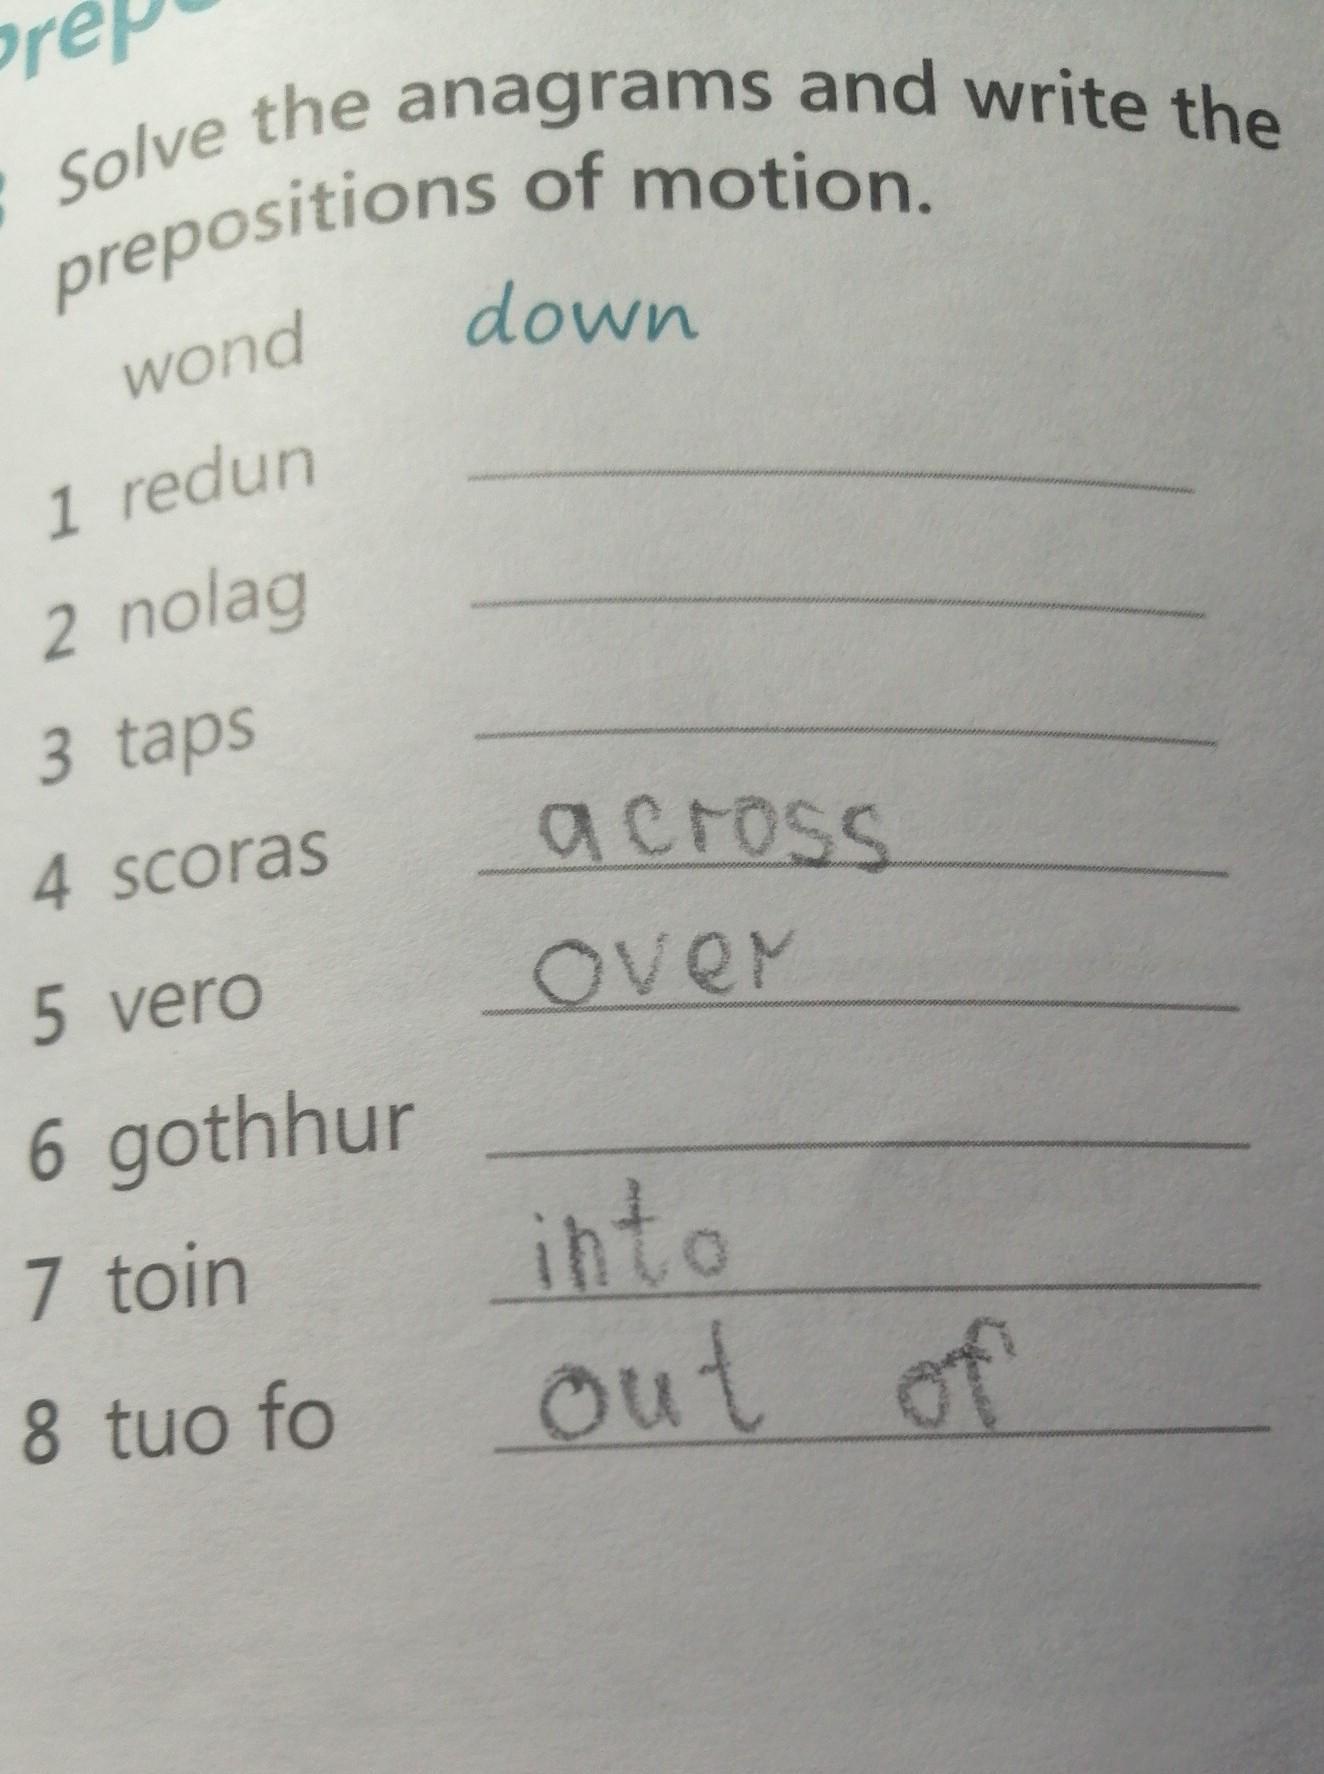 Solve the anagrams and write the
prepositions of motion.
wond down
1 redun
2 nolag
3 taps
4 scoras across
5 vero over
6 gothhur
7 toin into
8 tuo fo out of